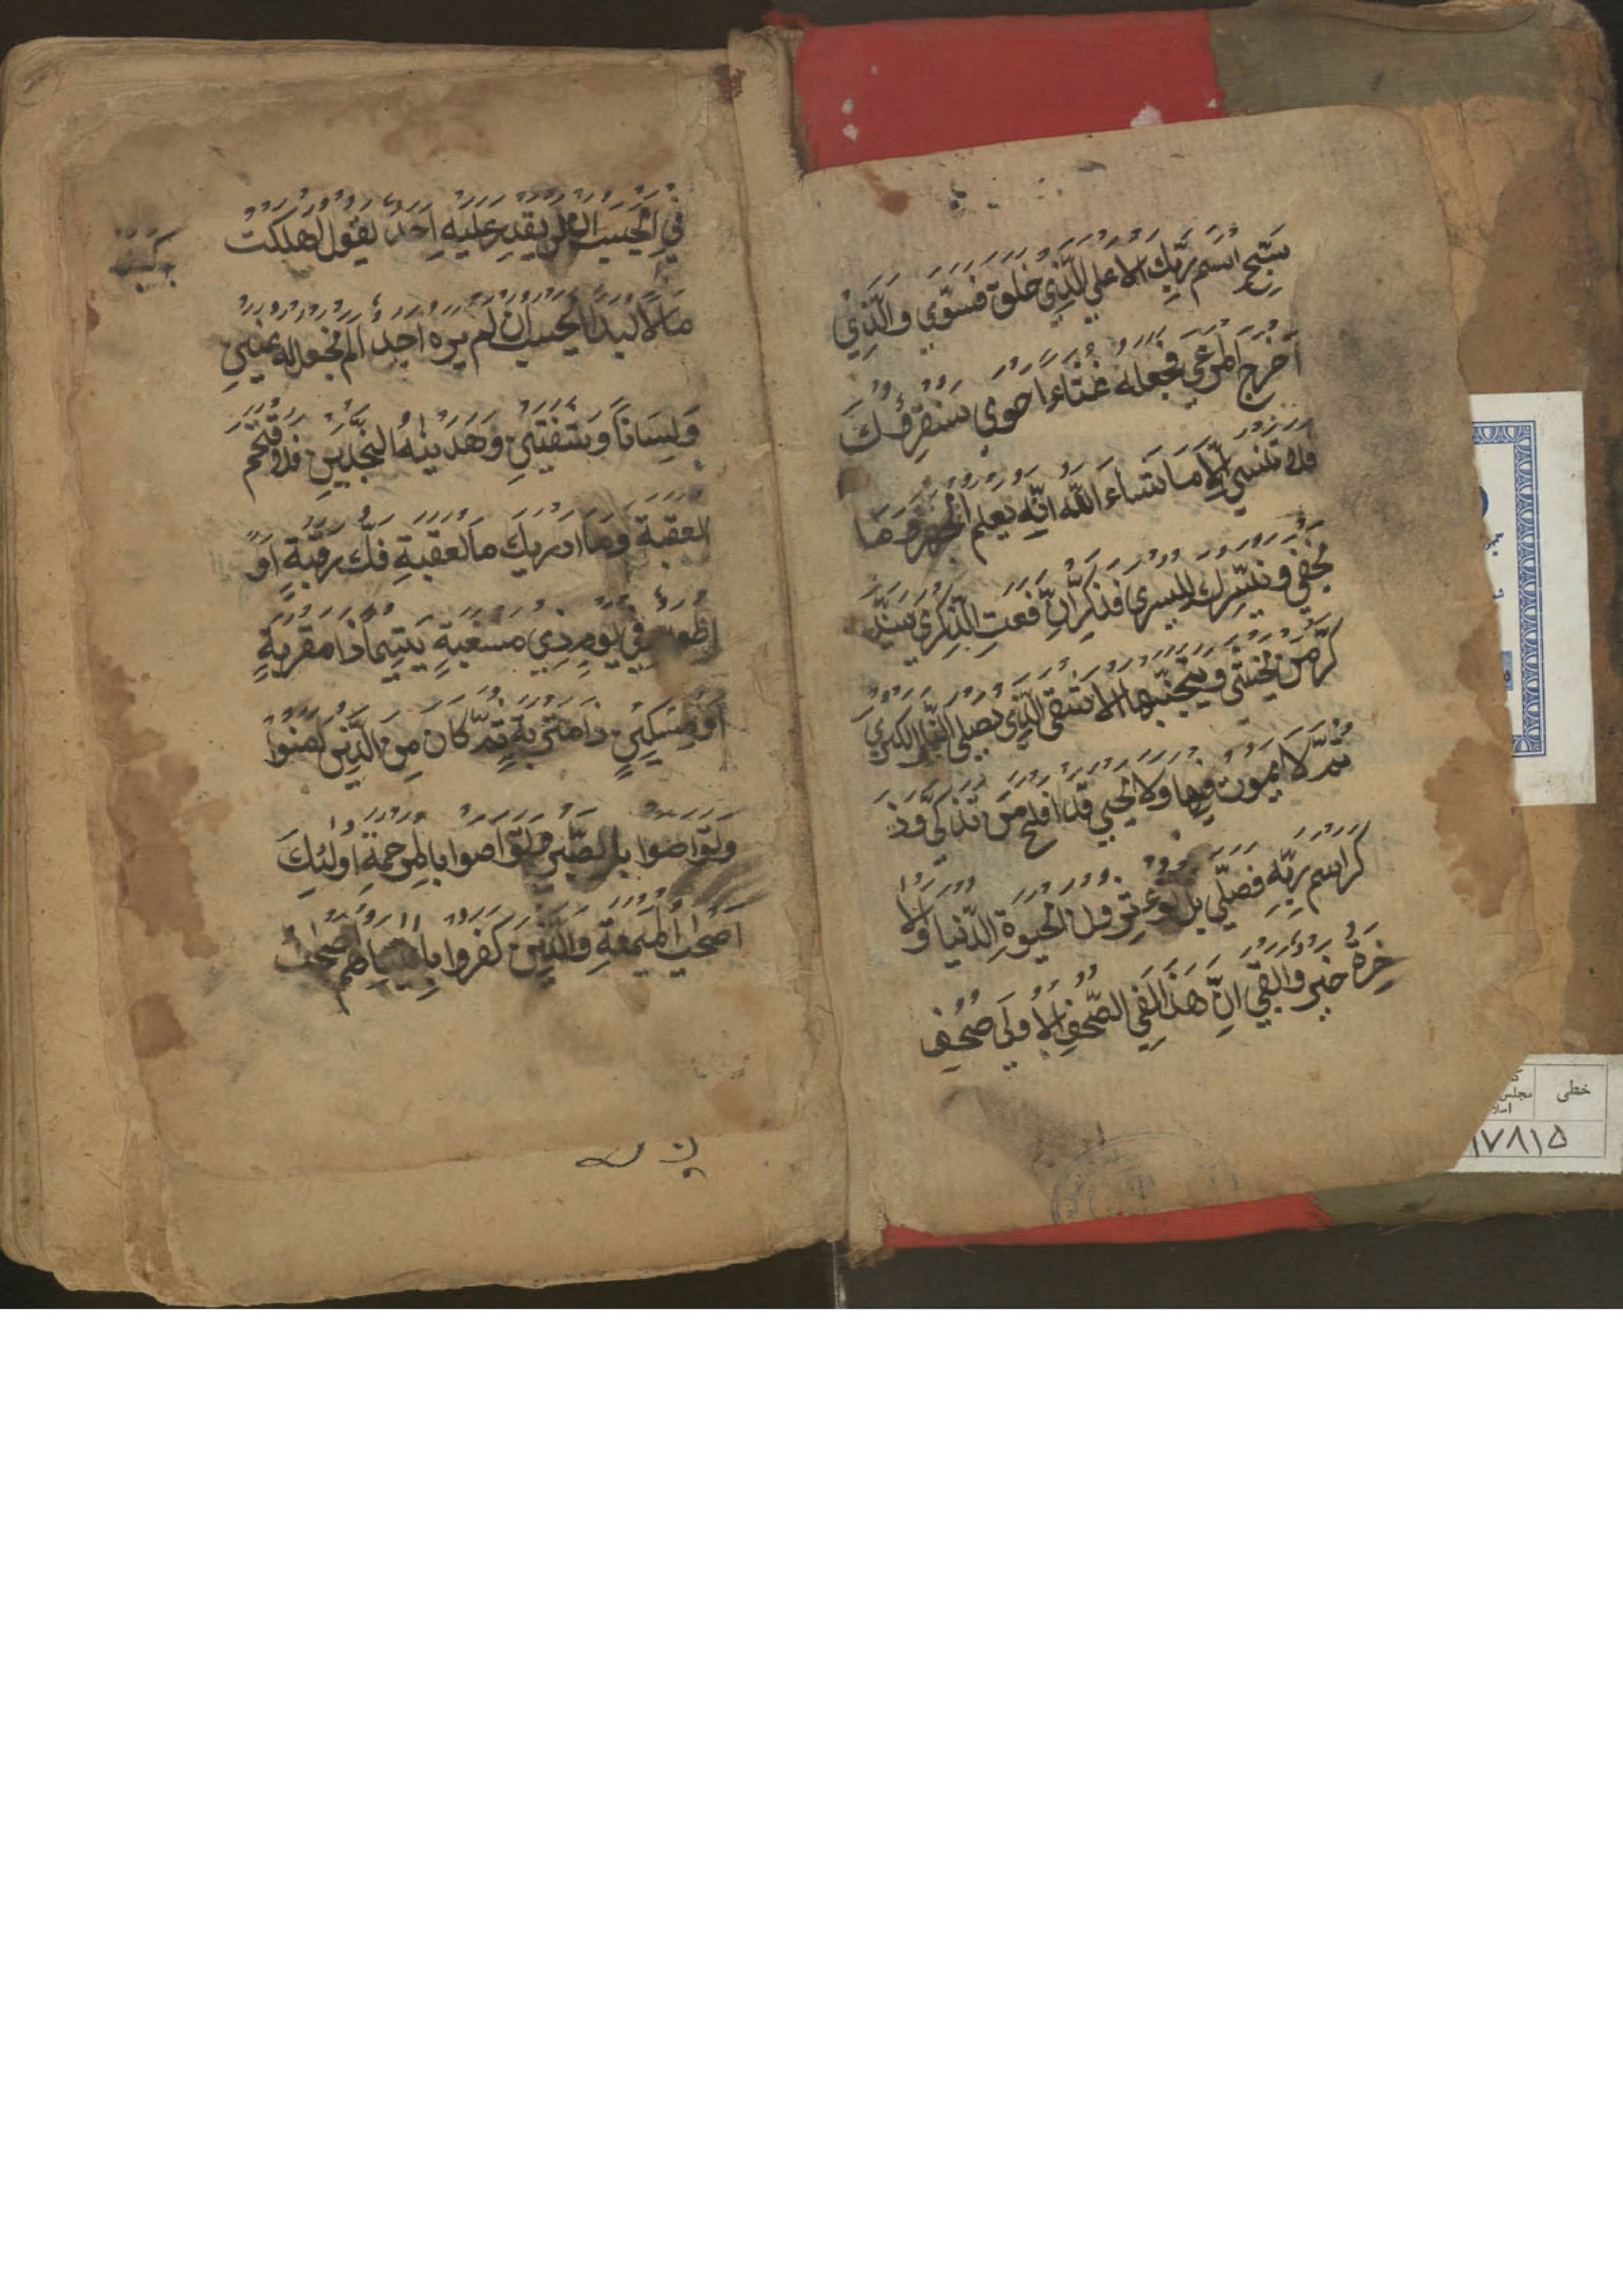 سَبِّحِ اسْمَ رَبِّكَ الاعلي الَّذِي خَلَقَ فسَوّي وَالَّذِي
اَخْرَجَ المَرْعي فجعله غُثاءً احوي سنقرؤُكَ
فلا تنسي اِلّا مَا شَاءَ اللّه انّه يَعلم الجهر وَمَا
يَخفي و نيسّرك لليسري فذكّر اِنْ نّفعتِ الذّكري سَيَذَّ
كّر مَنْ يخشي و يتجنّبها الاشقي الّذي يَصلي النّار الكبري
ثمّ لا يموت فيها ولا يحيي قد افلح مَن تزكّي وذ
كر اسم ربّه فصلّي بل تؤثرون الحيوةِ الدّنيا وَالا
خرة خير وابقي اِنّ هَذا لَفِي الصّحفِ الاُولَي صُحُفِ
فِي اَيحسب ان لن يقدر عليهِ اَحَد يقول اهلكت
مَالًا لبدًا ايحسب ان لم يره احد الم نجعل له عينينِ
وَلِسَاناً وَ شفتينِ وَهَدَيْنٰهُ النجدَينِ فلا اقتحم
العقبةَ وَمَا ادريكَ مَا لعقبةِ فكّ رقبةٍ اَوْ
اِطعام في يومٍ ذِي مَسغبةٍ يَتيماً ذا مَقربةٍ
اَوْ مِسْكِينٍ ذا متربةٍ ثمّ كَان مِنَ الّذين اٰمنوا
وَ تواصَوا بالصَّبْرِ وَ تَوَاصَوا بالمرحمةِ اولئِكَ
اَصْحٰب المَيمنةِ وَالّذِين كفروا بِاٰيَاتِهم اَصْحٰبُ
خطی
مجلس
۱۷۸۱۵